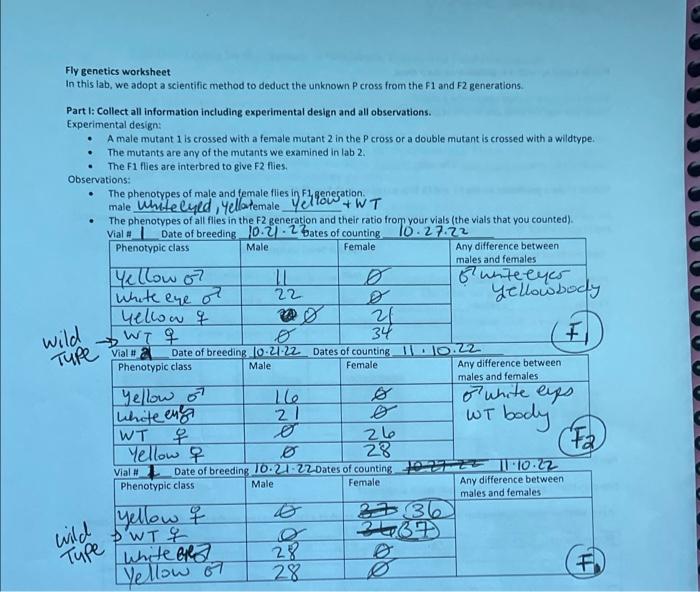 Fly genetics worksheet
In this lab, we adopt a scientific method to deduct the unknown P cross from the F1 and F2 generations.
Part I: Collect all information including experimental design and all observations.
Experimental design:
• A male mutant 1 is crossed with a female mutant 2 in the P cross or a double mutant is crossed with a wildtype.
• The mutants are any of the mutants we examined in lab 2.
• The F1 flies are interbred to give F2 flies.
Observations:
• The phenotypes of male and female flies in F1 generation.
male white eyed, yellow female yellow + WT
• The phenotypes of all flies in the F2 generation and their ratio from your vials (the vials that you counted).
Vial # 1 Date of breeding 10.21.22 Dates of counting 10.27.22
Phenotypic class Male Female Any difference between males and females
Yellow ♂ 11 Ø ♂ white eyes
White eye ♂ 22 Ø yellow body
yellow ♀ Ø 21
wild Type → WT ♀ Ø 34 F1
Vial # 2 Date of breeding 10-21-22 Dates of counting 11.10.22
Phenotypic class Male Female Any difference between males and females
yellow ♂ 16 Ø ♂ white eyes
white eye ♂ 21 Ø WT body
WT ♀ Ø 26 F2
Yellow ♀ Ø 28
Vial # 1 Date of breeding 10-21-22 Dates of counting 10-27-22 11-10-22
Phenotypic class Male Female Any difference between males and females
yellow ♀ Ø 37 36
wild Type → WT ♀ Ø 36 37
white eye ♂ 28 Ø
Yellow ♂ 28 Ø F1